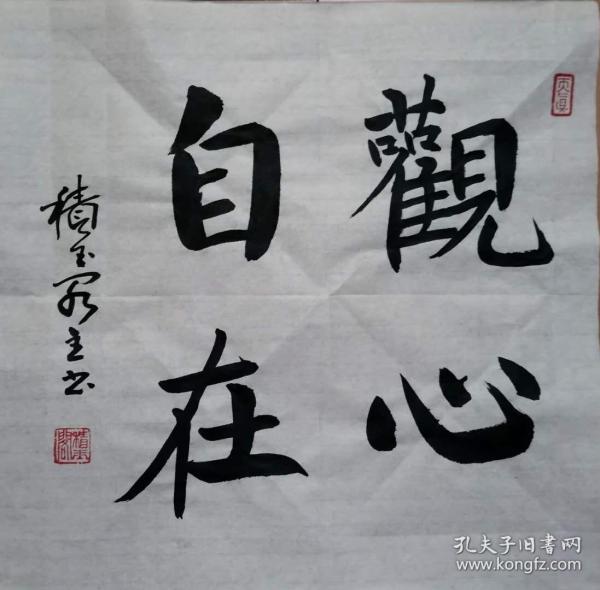 觀心
自在
積玉閣主书
天真
孔夫子旧書网
www.kongfz.com